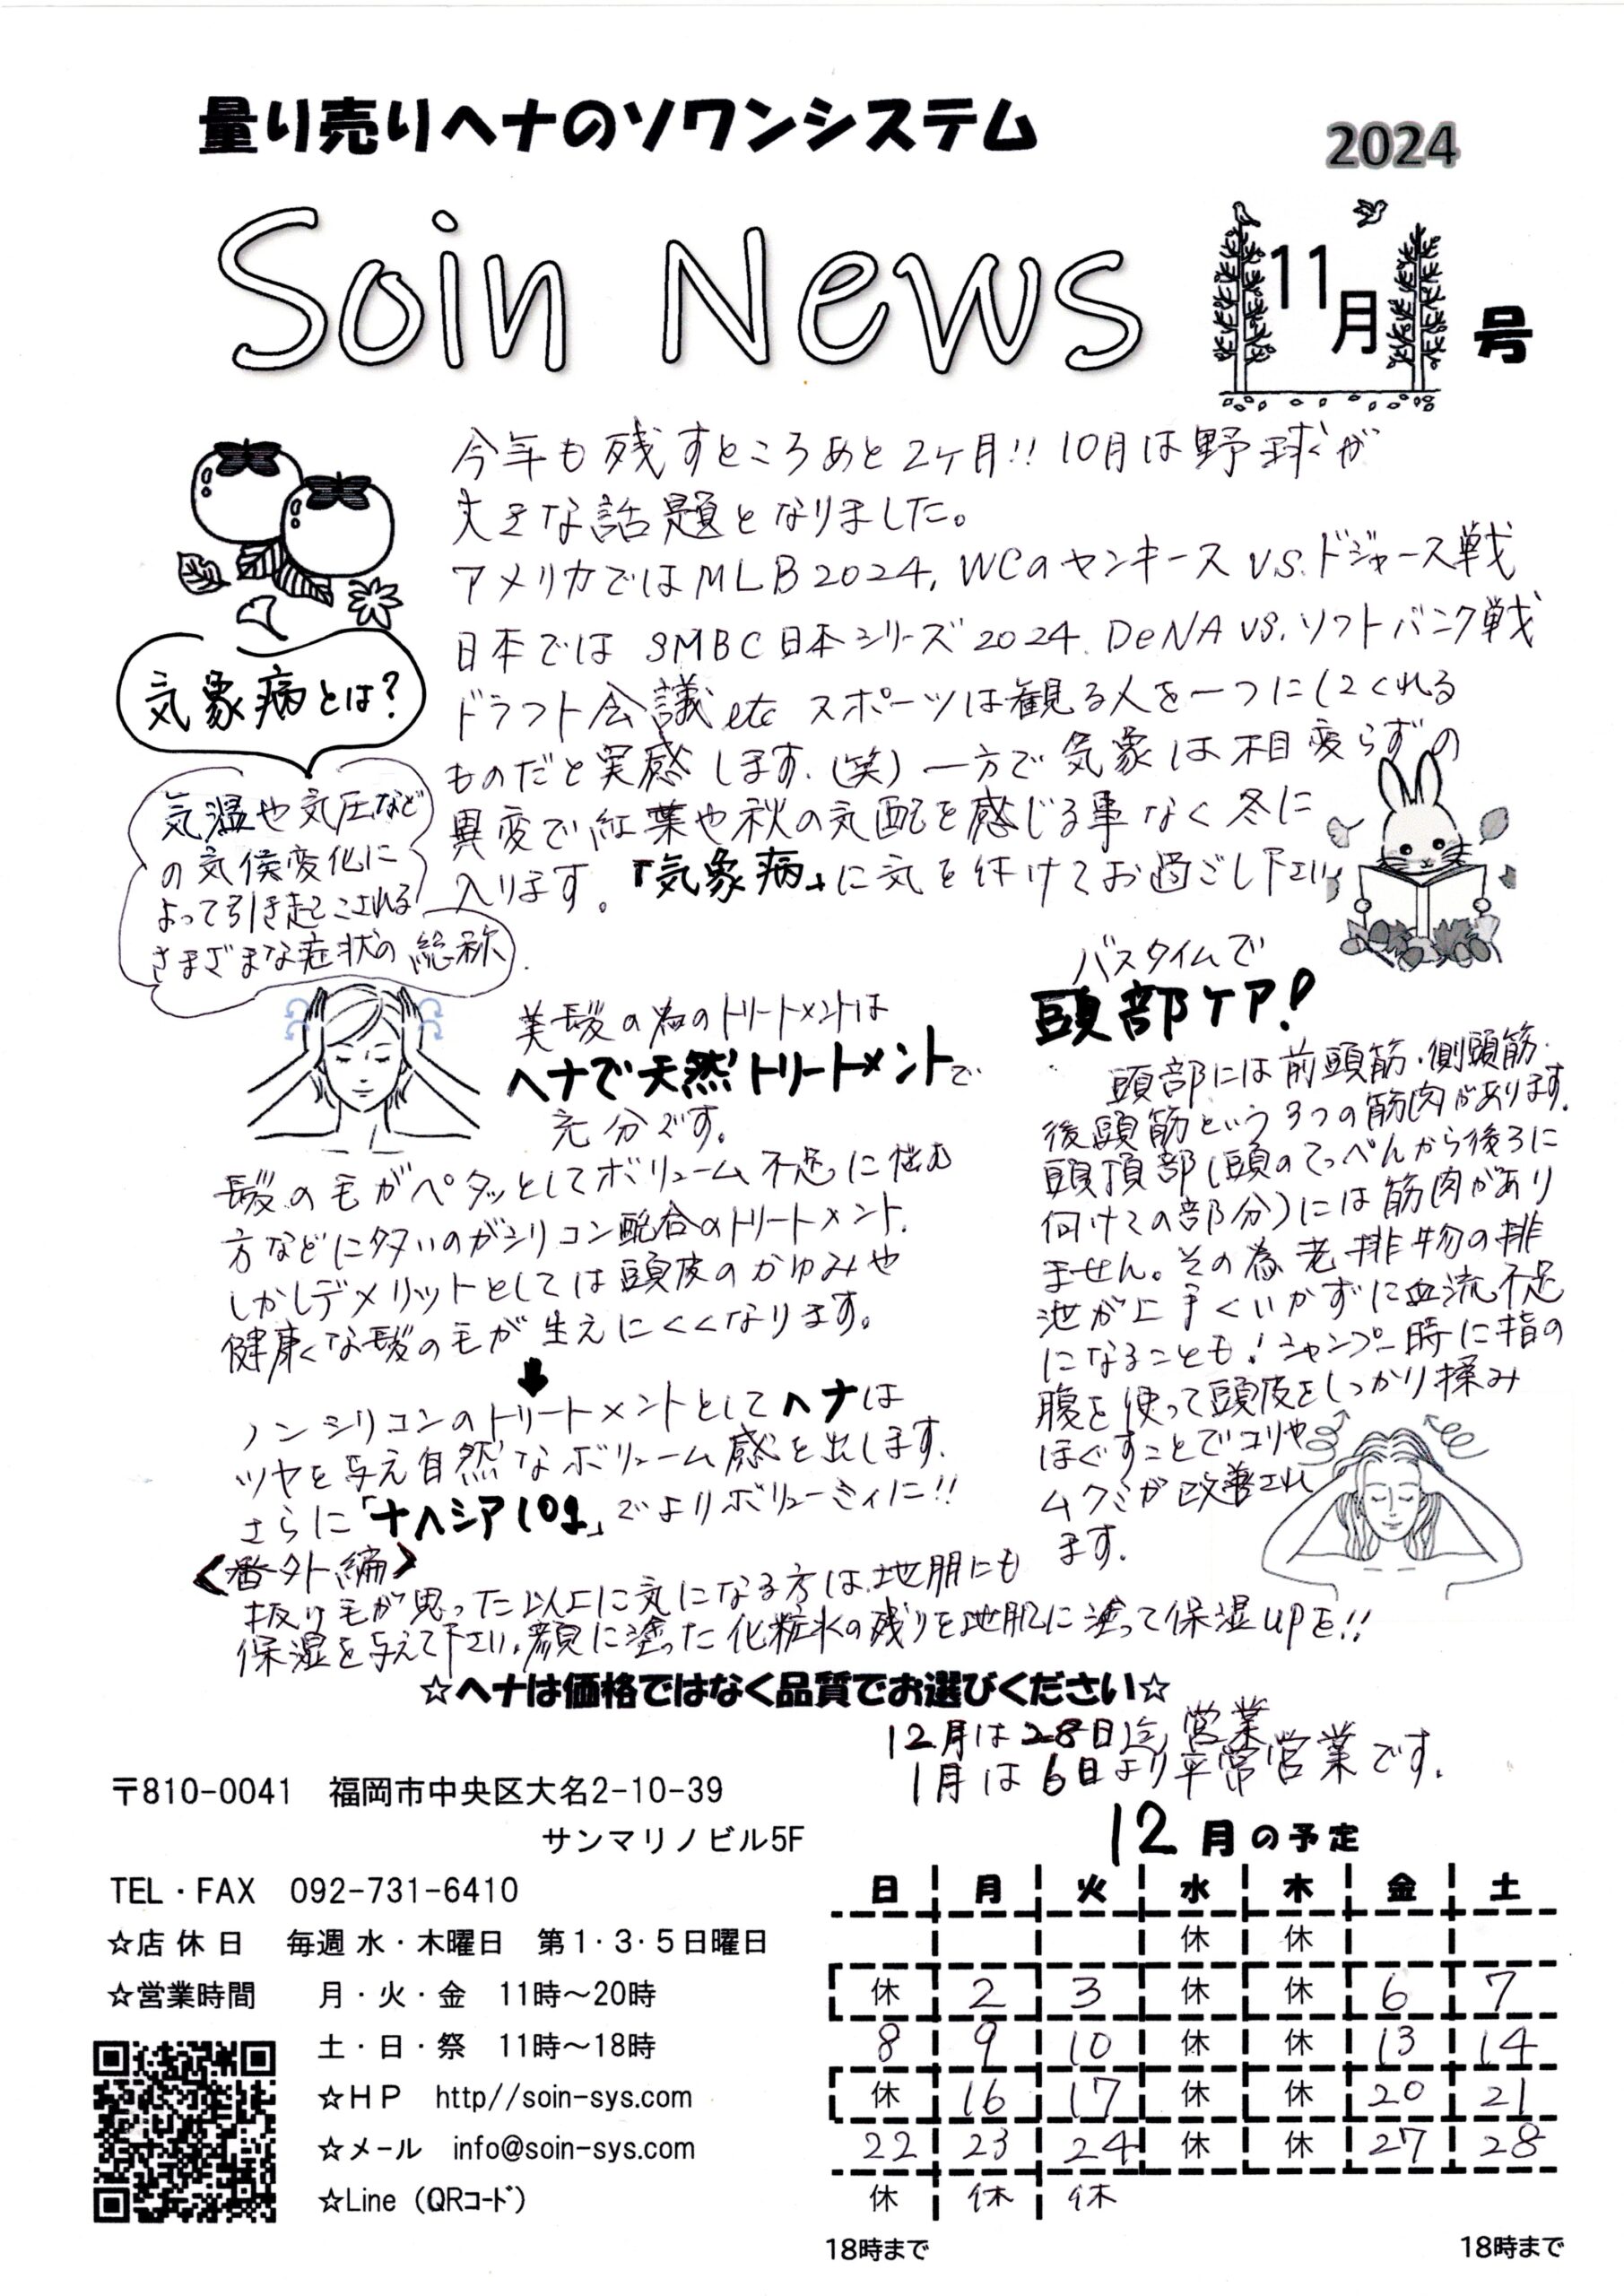 量り売りヘナのソワンシステム
2024
Soin News
11月
号
今年も残すところあと2ヶ月!! 10月は野球が
大きな話題となりました。
アメリカではMLB2024, WCのヤンキース VS.ドジャース戦
日本では SMBC日本シリーズ2024. DeNA VS.ソフトバンク戦
ドラフト会議 etc スポーツは観る人を一つにしてくれる
ものだと実感します.(笑) 一方で気象は相変らずの
異変で紅葉や秋の気配を感じる事なく冬に
入ります。『気象病』に気を付けてお過ごし下さい
気象病とは?
気温や気圧など
の気候変化に
よって引き起こされる
さまざまな症状の総称.
美髪の為のトリートメントは
ヘナで天然トリートメントで
充分です。
髪の毛がペタッとしてボリューム不足に悩む
方などに多いのがシリコン配合のトリートメント.
しかしデメリットとしては頭皮のかゆみや
健康な髪の毛が生えにくくなります。
↓
ノンシリコンのトリートメントとしてヘナは
ツヤを与え自然なボリューム感を出します.
さらに「ナヘシア10g」でよりボリューミィに!!
<番外編>
抜け毛が思った以上に気になる方は、地肌にも
保湿を与えて下さい.顔に塗った化粧水の残りを地肌に塗って保湿UPを!!
バスタイムで
頭部ケア!
頭部には前頭筋・側頭筋・
後頭筋という3つの筋肉があります.
頭頂部(頭のてっぺんから後ろに
向けての部分)には筋肉があり
ません。その為老排物の排
泄が上手くいかずに血流不足
になることも!シャンプー時に指の
腹を使って頭皮をしっかり揉み
ほぐすことでコリや
ムクミが改善され
ます.
☆ヘナは価格ではなく品質でお選びください☆
12月は28日迄営業
1月は6日より平常営業です.
〒810-0041 福岡市中央区大名2-10-39
サンマリノビル5F
TEL・FAX 092-731-6410
☆店 休 日 毎週 水・木曜日 第1・3・5日曜日
☆営業時間 月・火・金 11時～20時
土・日・祭 11時～18時
☆HP http//soin-sys.com
☆メール info@soin-sys.com
☆Line（QRコード）
12月の予定
日 月 火 水 木 金 土
休 休
休 2 3 休 休 6 7
8 9 10 休 休 13 14
休 16 17 休 休 20 21
22 23 24 休 休 27 28
休 休 休
18時まで 18時まで